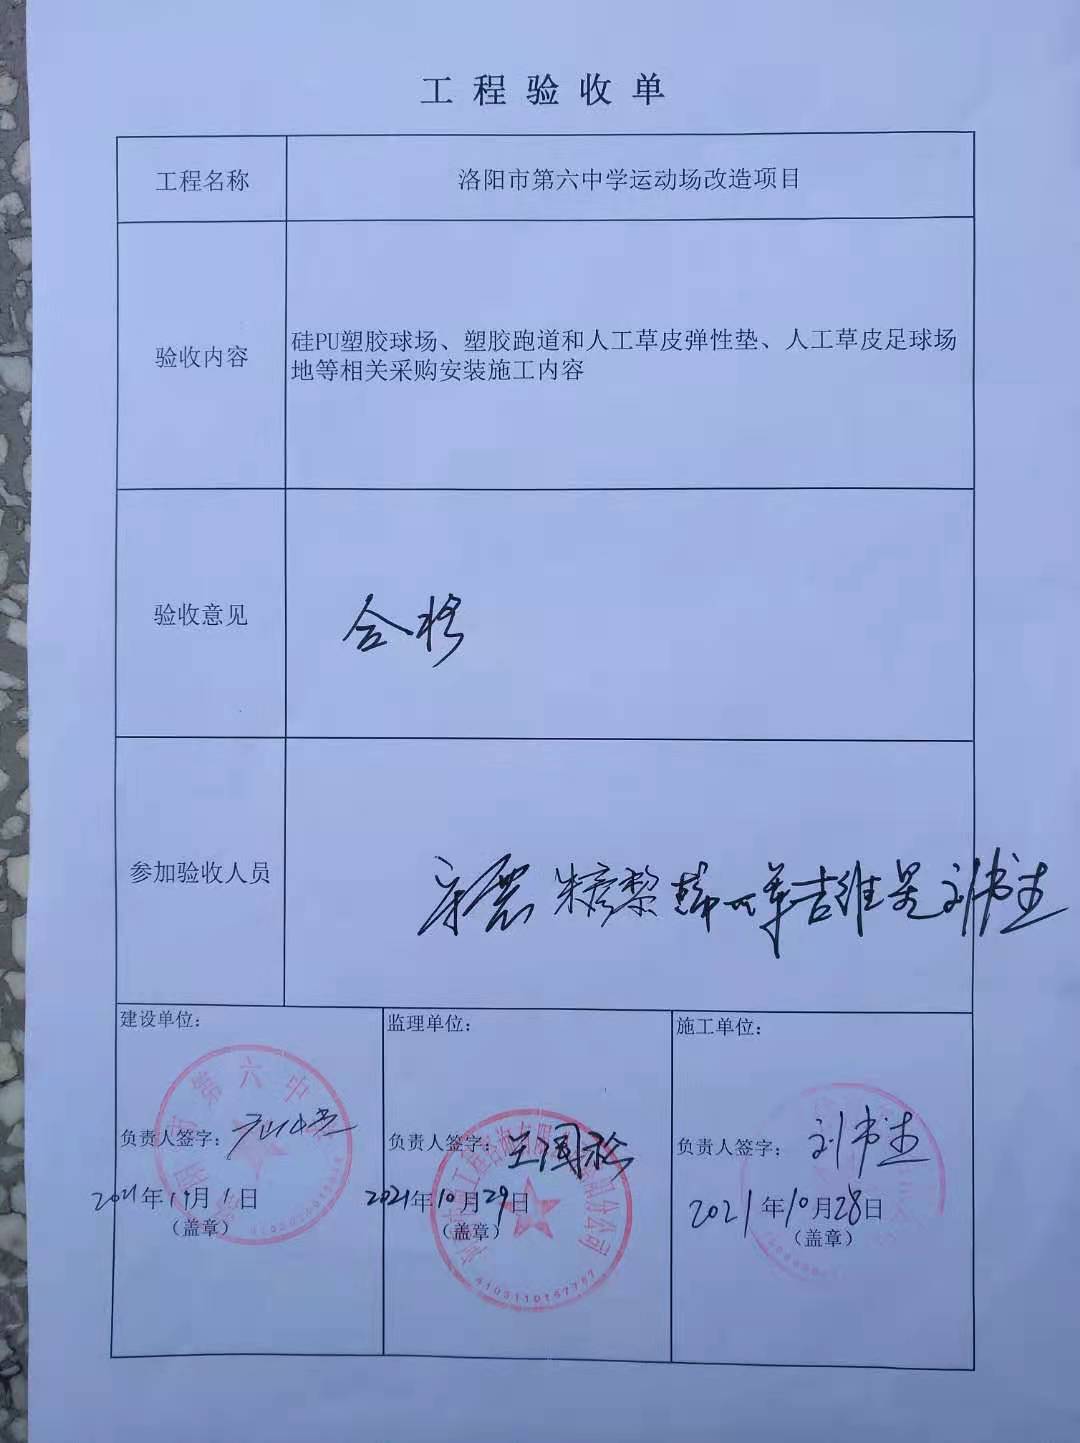 工程验收单
工程名称
洛阳市第六中学运动场改造项目
验收内容
硅PU塑胶球场、塑胶跑道和人工草皮弹性垫、人工草皮足球场
地等相关采购安装施工内容
验收意见
合格
参加验收人员
刘书志
建设单位：
第六中
负责人签字：
2021年11月1日
（盖章）
监理单位：
负责人签字：
2021年10月29日
（盖章）
4103110167787
施工单位：
负责人签字：刘书志
2021年10月28日
（盖章）